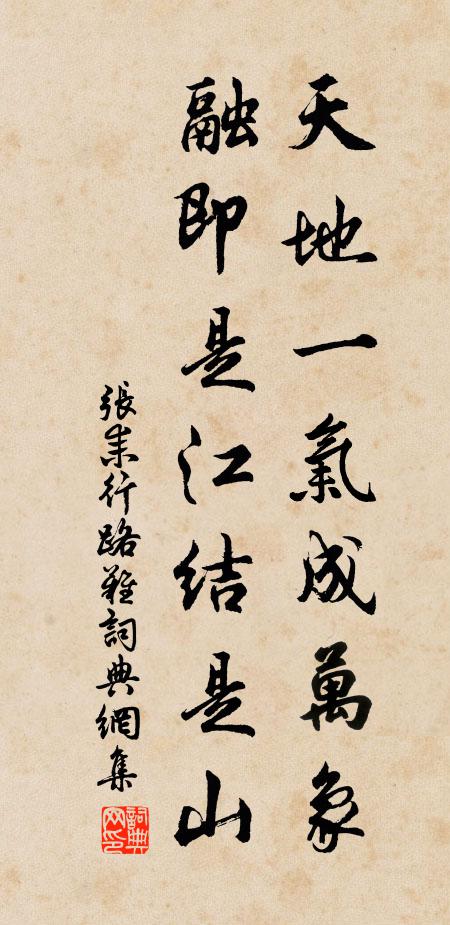 天地一氣成萬象
融即是江結是山
張耒行路難詞典網集
詞典網印